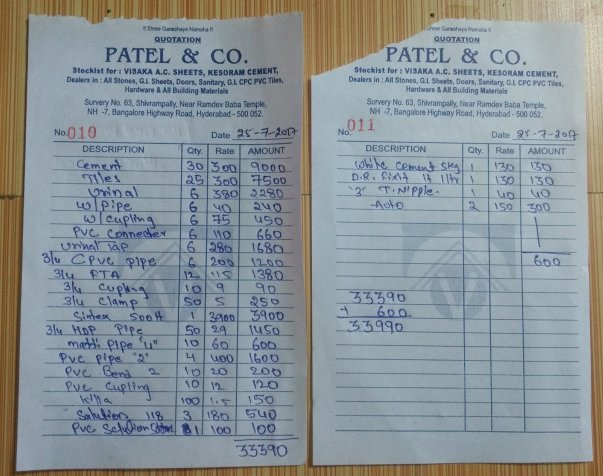 !! Shree Ganeshaya Namaha !!
QUOTATION
PATEL & CO.
Stockist for : VISAKA A.C. SHEETS, KESORAM CEMENT,
Dealers in : All Stones, G.I. Sheets, Doors, Sanitary, G.I. CPC PVC Tiles,
Hardware & All Building Materials
Survery No. 63, Shivrampally, Near Ramdev Baba Temple,
NH -7, Bangalore Highway Road, Hyderabad - 500 052.
No. 010 Date 25-7-2017
DESCRIPTION Qty. Rate AMOUNT
Cement 30 300 9000
Tiles 25 300 7500
Urinal 6 380 2280
w/pipe 6 40 240
w/cupling 6 75 450
PVC connecter 6 110 660
urinal Tap 6 280 1680
3/4 CPVC pipe 6 200 1200
3/4 FTA 12 115 1380
3/4 cupling 10 9 90
3/4 clamp 50 5 250
Sintex 500 lt 1 3900 3900
3/4 HDP Pipe 50 29 1450
pipe "4" 10 60 600
PVC pipe "2" 4 400 1600
PVC Bend 2 10 20 200
PVC cupling 10 12 120
Killa 100 1.5 150
Solution 118 3 180 540
PVC Solution 1 100 100
33390
Shree Ganeshaya Namaha !!
QUOTATION
PATEL & CO.
Stockist for : VISAKA A.C. SHEETS, KESORAM CEMENT,
Dealers in : All Stones, G.I. Sheets, Doors, Sanitary, G.I. CPC PVC Tiles,
Hardware & All Building Materials
Survery No. 63, Shivrampally, Near Ramdev Baba Temple,
NH -7, Bangalore Highway Road, Hyderabad - 500 052.
No. 011 Date 25-7-2017
DESCRIPTION Qty. Rate AMOUNT
White Cement 5kg 1 130 130
D.R. 1 ltr 1 130 130
"3" T. Nipple. 1 40 40
Auto 2 150 300
600
33390
+ 600
33990